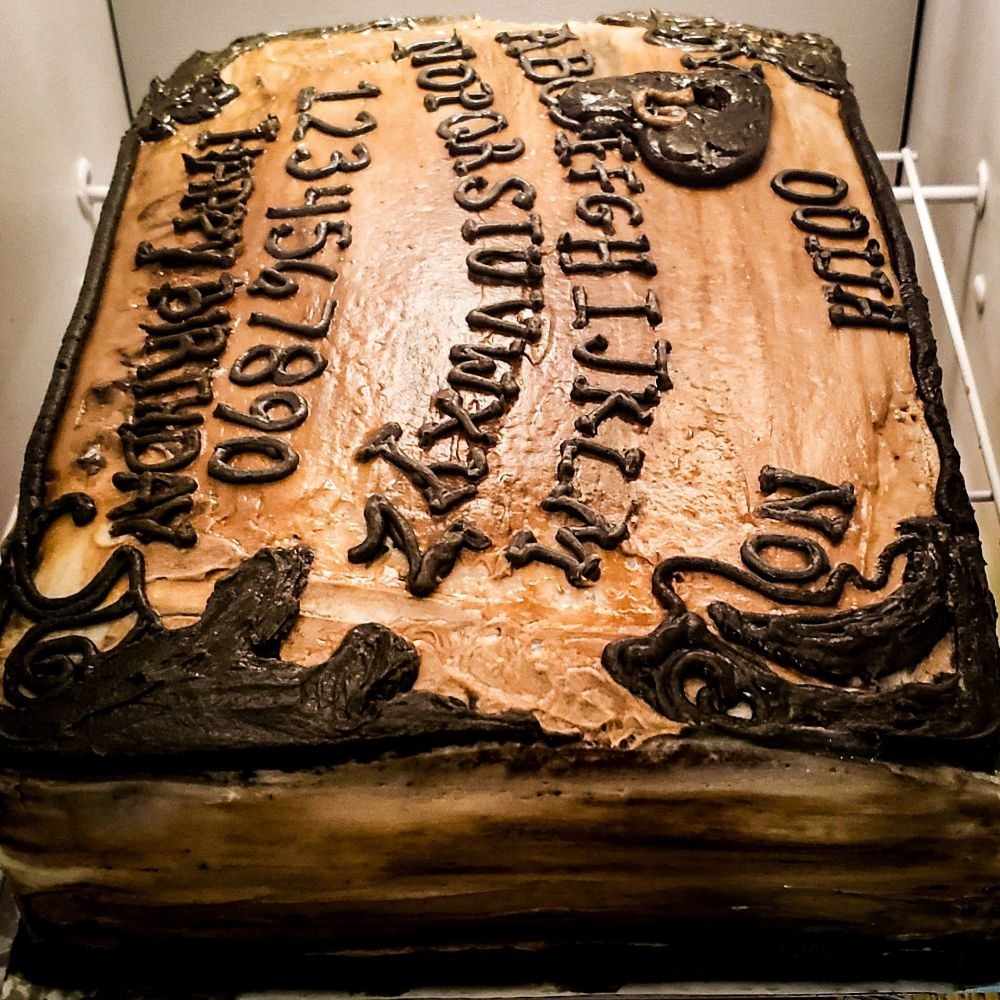 OUIJA NO
NOPQRSTUVWXYZ
1234567890
HAPPY BIRTHDAY